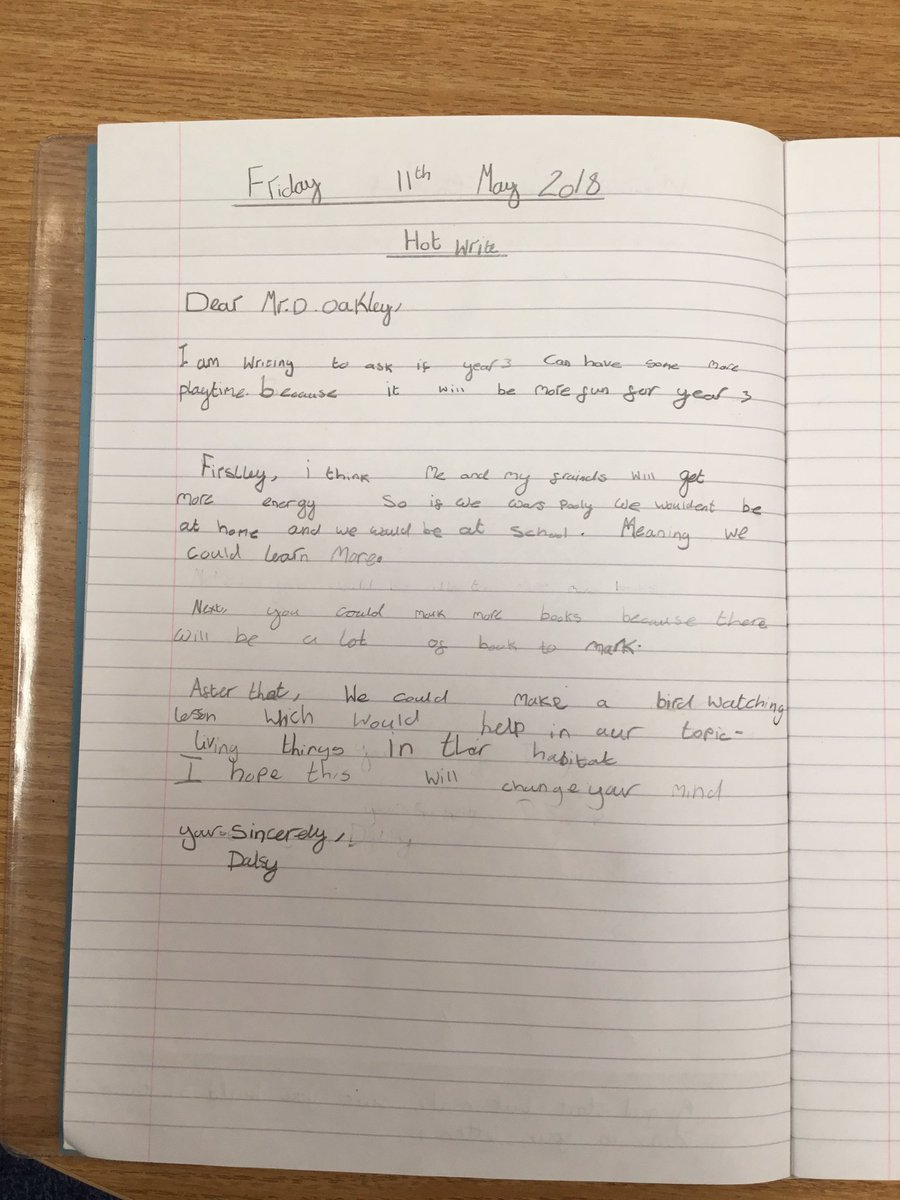 Friday 11th May 2018
Hot Write
Dear Mr.D.Oakley,
I am writing to ask if year 3 can have some more
playtime. because it will be more fun for year 3
Firslley, i think Me and my frainds will get
more energy So if we wars pooly we wouldent be
at home and we would be at school. Meaning we
could learn More.
Next, you could mark more books because there
will be a lot of book to mark.
After that, We could make a bird watching
leson which would help in our topic-
living things in ther habitat
I hope this will change your mind
your sincerely,
Daisy